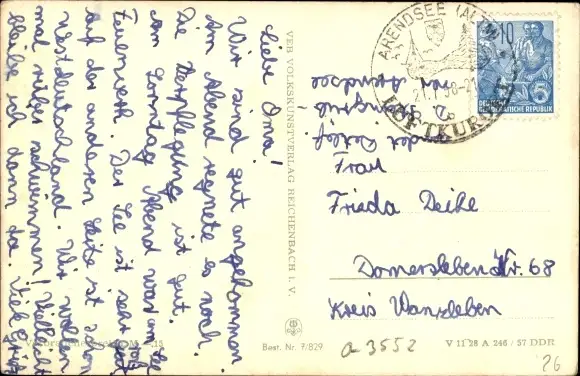 Liebe Oma!
Wir sind gut angekommen
Am Abend regnete es noch.
Die Verpflegung ist gut.
Am Sonntag Abend war am See
Feuerwerk. Der See ist sehr groß
auf der anderen Seite ist schon
Westdeutschland. Wir wollen
mal rüber schwimmen! Vielleicht
bleibe ich dann da. Viele Grüße
VEB VOLKSKUNSTVERLAG REICHENBACH I. V.
ARENDSEE (ALTM)
21.7.58-21
LUFTKURORT
10
5
DEUTSCHE
DEMOKRATISCHE REPUBLIK
Arendsee
Frau
Frieda Deike
Domersleben Nr. 68
Kreis Wanzleben
Best. Nr. 7/829
a 3552
V 11 28 A 246 / 57 DDR
26